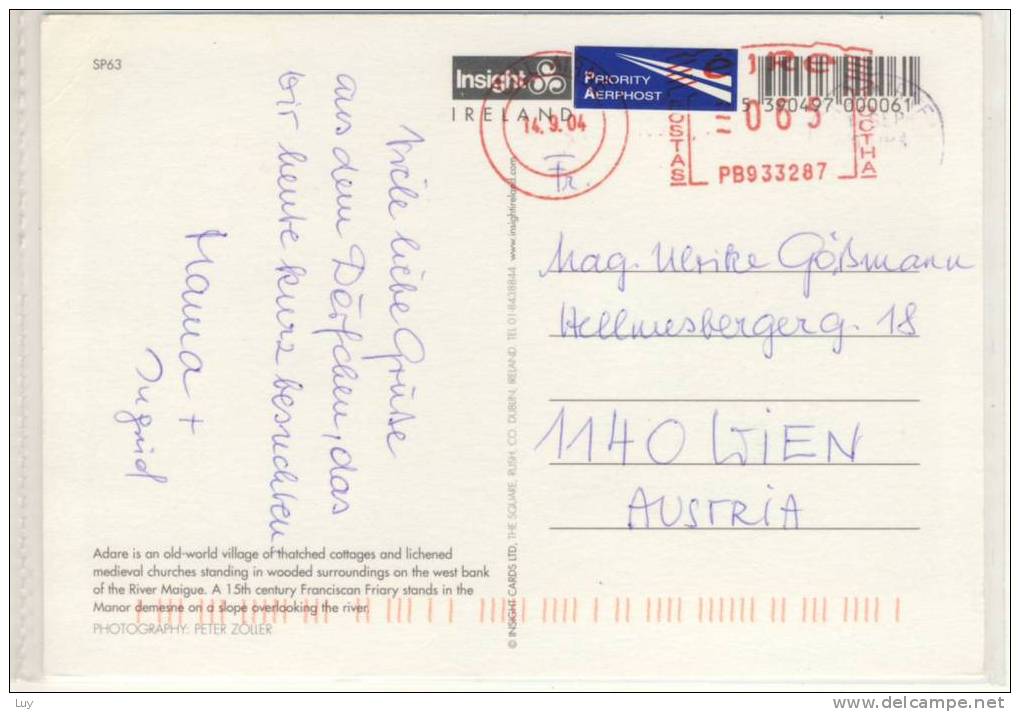 SP63
Insight
IRELAND
PRIORITY
AERPHOST
14.9.04
Fr.
eIRE
063
POSTAS
PB933287
5 390497 000061
Viele liebe Grüße
aus dem Dörfchen, das
wir heute kurz besuchten
Mama +
Ingrid
Mag. Ulrike Gößmann
Hellmesbergerg. 18
1140 WIEN
AUSTRIA
© INSIGHT CARDS LTD, THE SQUARE, RUSH, CO. DUBLIN, IRELAND. TEL 01-8438844. www.insightireland.com
Adare is an old-world village of thatched cottages and lichened
medieval churches standing in wooded surroundings on the west bank
of the River Maigue. A 15th century Franciscan Friary stands in the
Manor demesne on a slope overlooking the river.
PHOTOGRAPHY: PETER ZÖLLER
Luy
www.delcampe.net